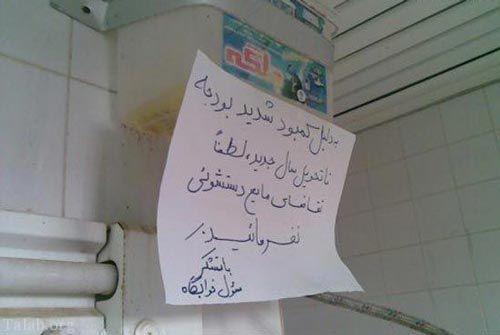 لکه
به دلیل کمبود شدید بودجه
تا تحویل سال جدید، لطفاً
تقاضای مایع دستشوئی
نفرمائید.
با تشکر
مسئول خوابگاه
Talab.org